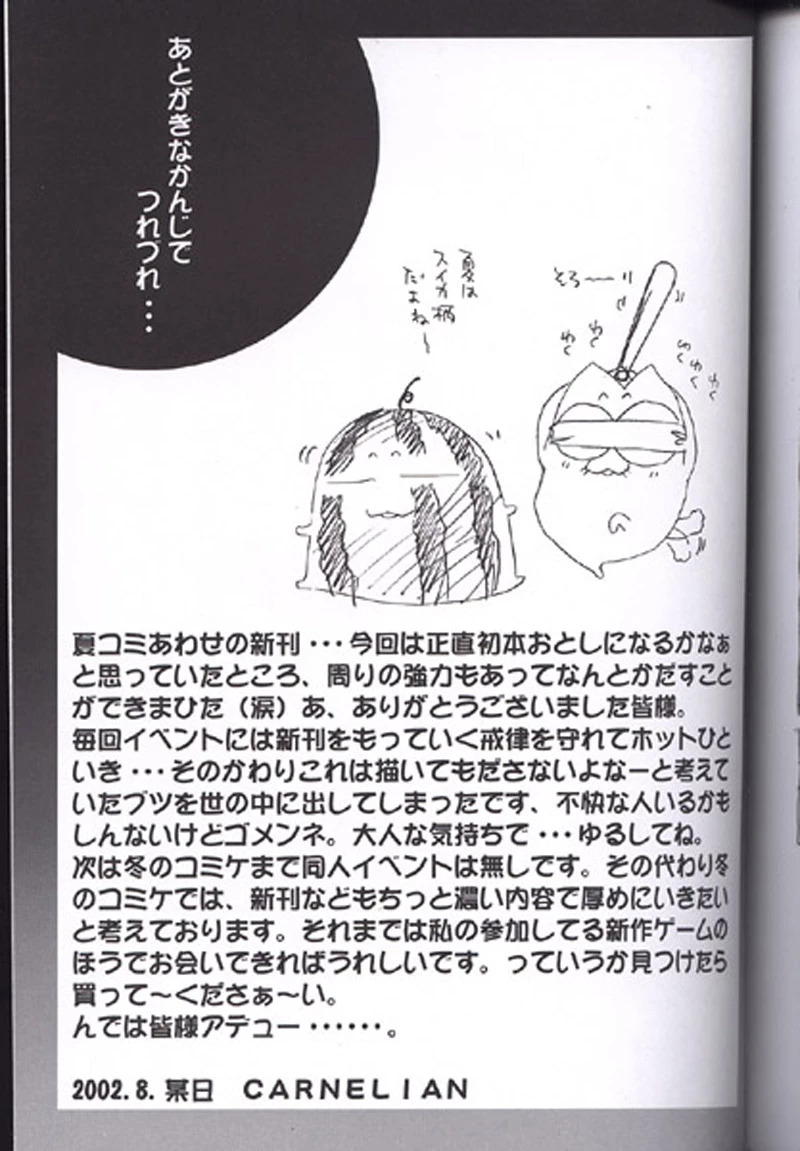 あとがきなかんじで
つれづれ・・・
夏は
スイカ柄
だよね〜
そろ〜〜リ
わく
わく
わく
わく
わく
夏コミあわせの新刊・・・今回は正直初本おとしになるかなぁ
と思っていたところ、周りの強力もあってなんとかだすこと
ができまひた（涙）あ、ありがとうございました皆様。
毎回イベントには新刊をもっていく戒律を守れてホットひと
いき・・・そのかわりこれは描いてもださないよなーと考えて
いたブツを世の中に出してしまったです、不快な人いるかも
しんないけどゴメンネ。大人な気持ちで・・・ゆるしてね。
次は冬のコミケまで同人イベントは無しです。その代わり冬
のコミケでは、新刊などもちっと濃い内容で厚めにいきたい
と考えております。それまでは私の参加してる新作ゲームの
ほうでお会いできればうれしいです。っていうか見つけたら
買って〜くださぁ〜い。
んでは皆様アデュー・・・・・・。
2002.8.某日 CARNELIAN